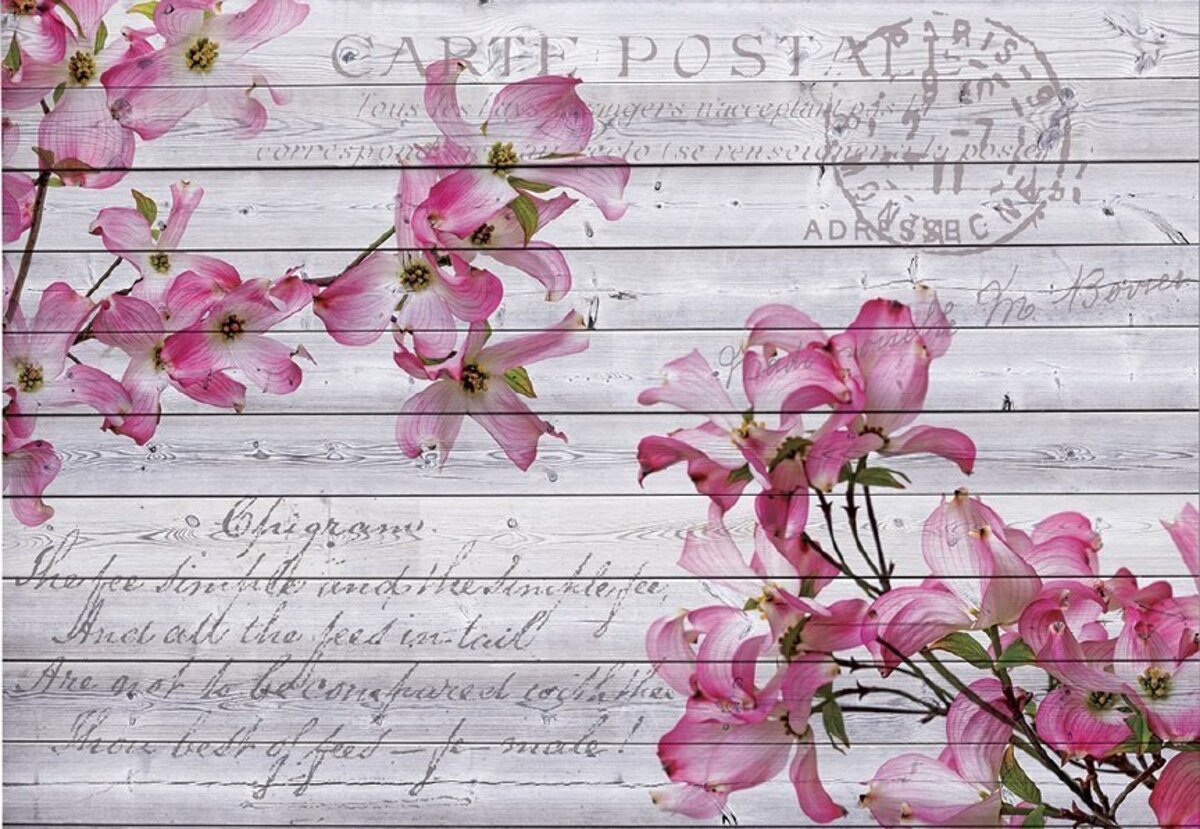 CARTE POSTALE
Tous les Pays étrangers n'acceptent pas la
correspondance au recto (se renseigner à la poste)
PARIS
ADRESSE
M Bovier
Epigram.
The fee simple and the simple fee,
And all the fees in-tail
Are not to be compared with thee
Thou best of fees — fe-male!